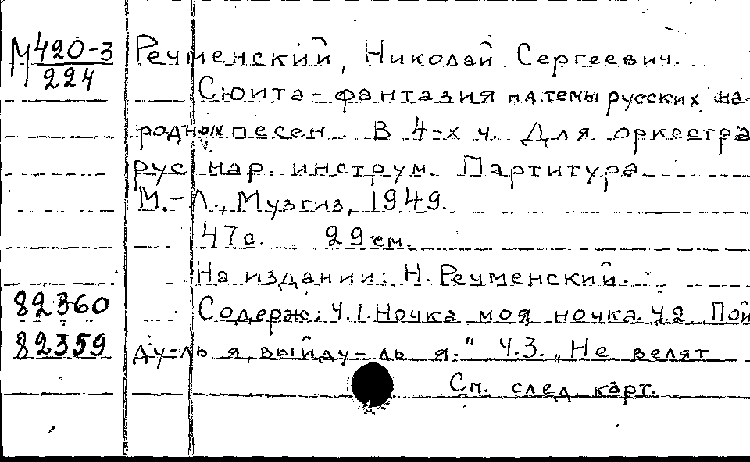 М 420-3 Речменский, Николай Сергеевич.
224
Сюита-фантазия на темы русских на-
родных песен. В 4-х ч. Для оркестра
рус. нар. инструм. Партитура.
М.-Л., Музгиз, 1949.
47 с. 29 см.
На издании: Н. Речменский.
82360 Содерж: Ч.1. Ночка моя ночка. Ч.2 Пой
82359 ду-ль я, выйду-ль я." Ч.3. Не велят
См. след карт.